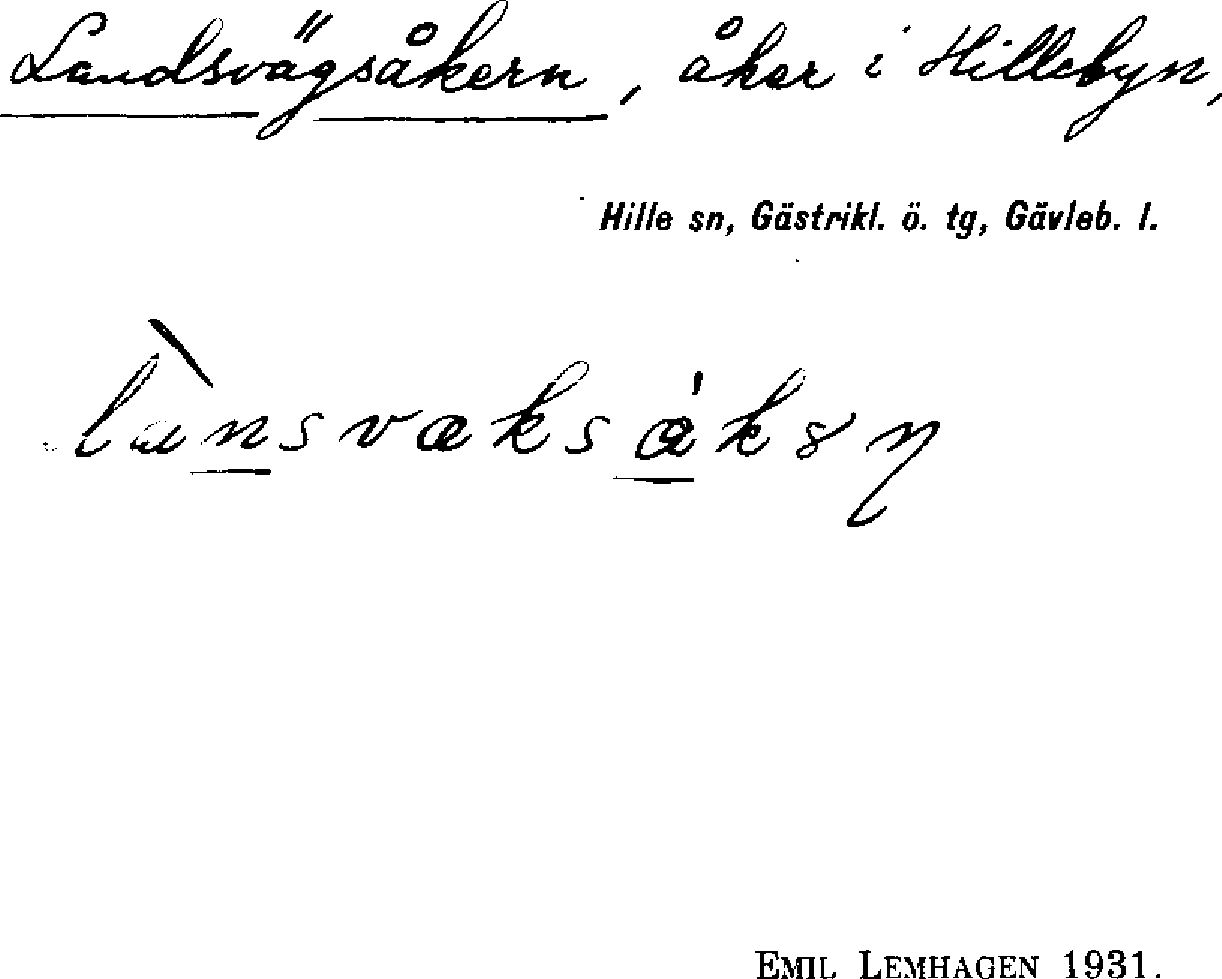 Landsvägsåkern, åker i Hillebyn,
Hille sn, Gästrikl. ö. tg, Gävleb. l.
EMIL LEMHAGEN 1931.